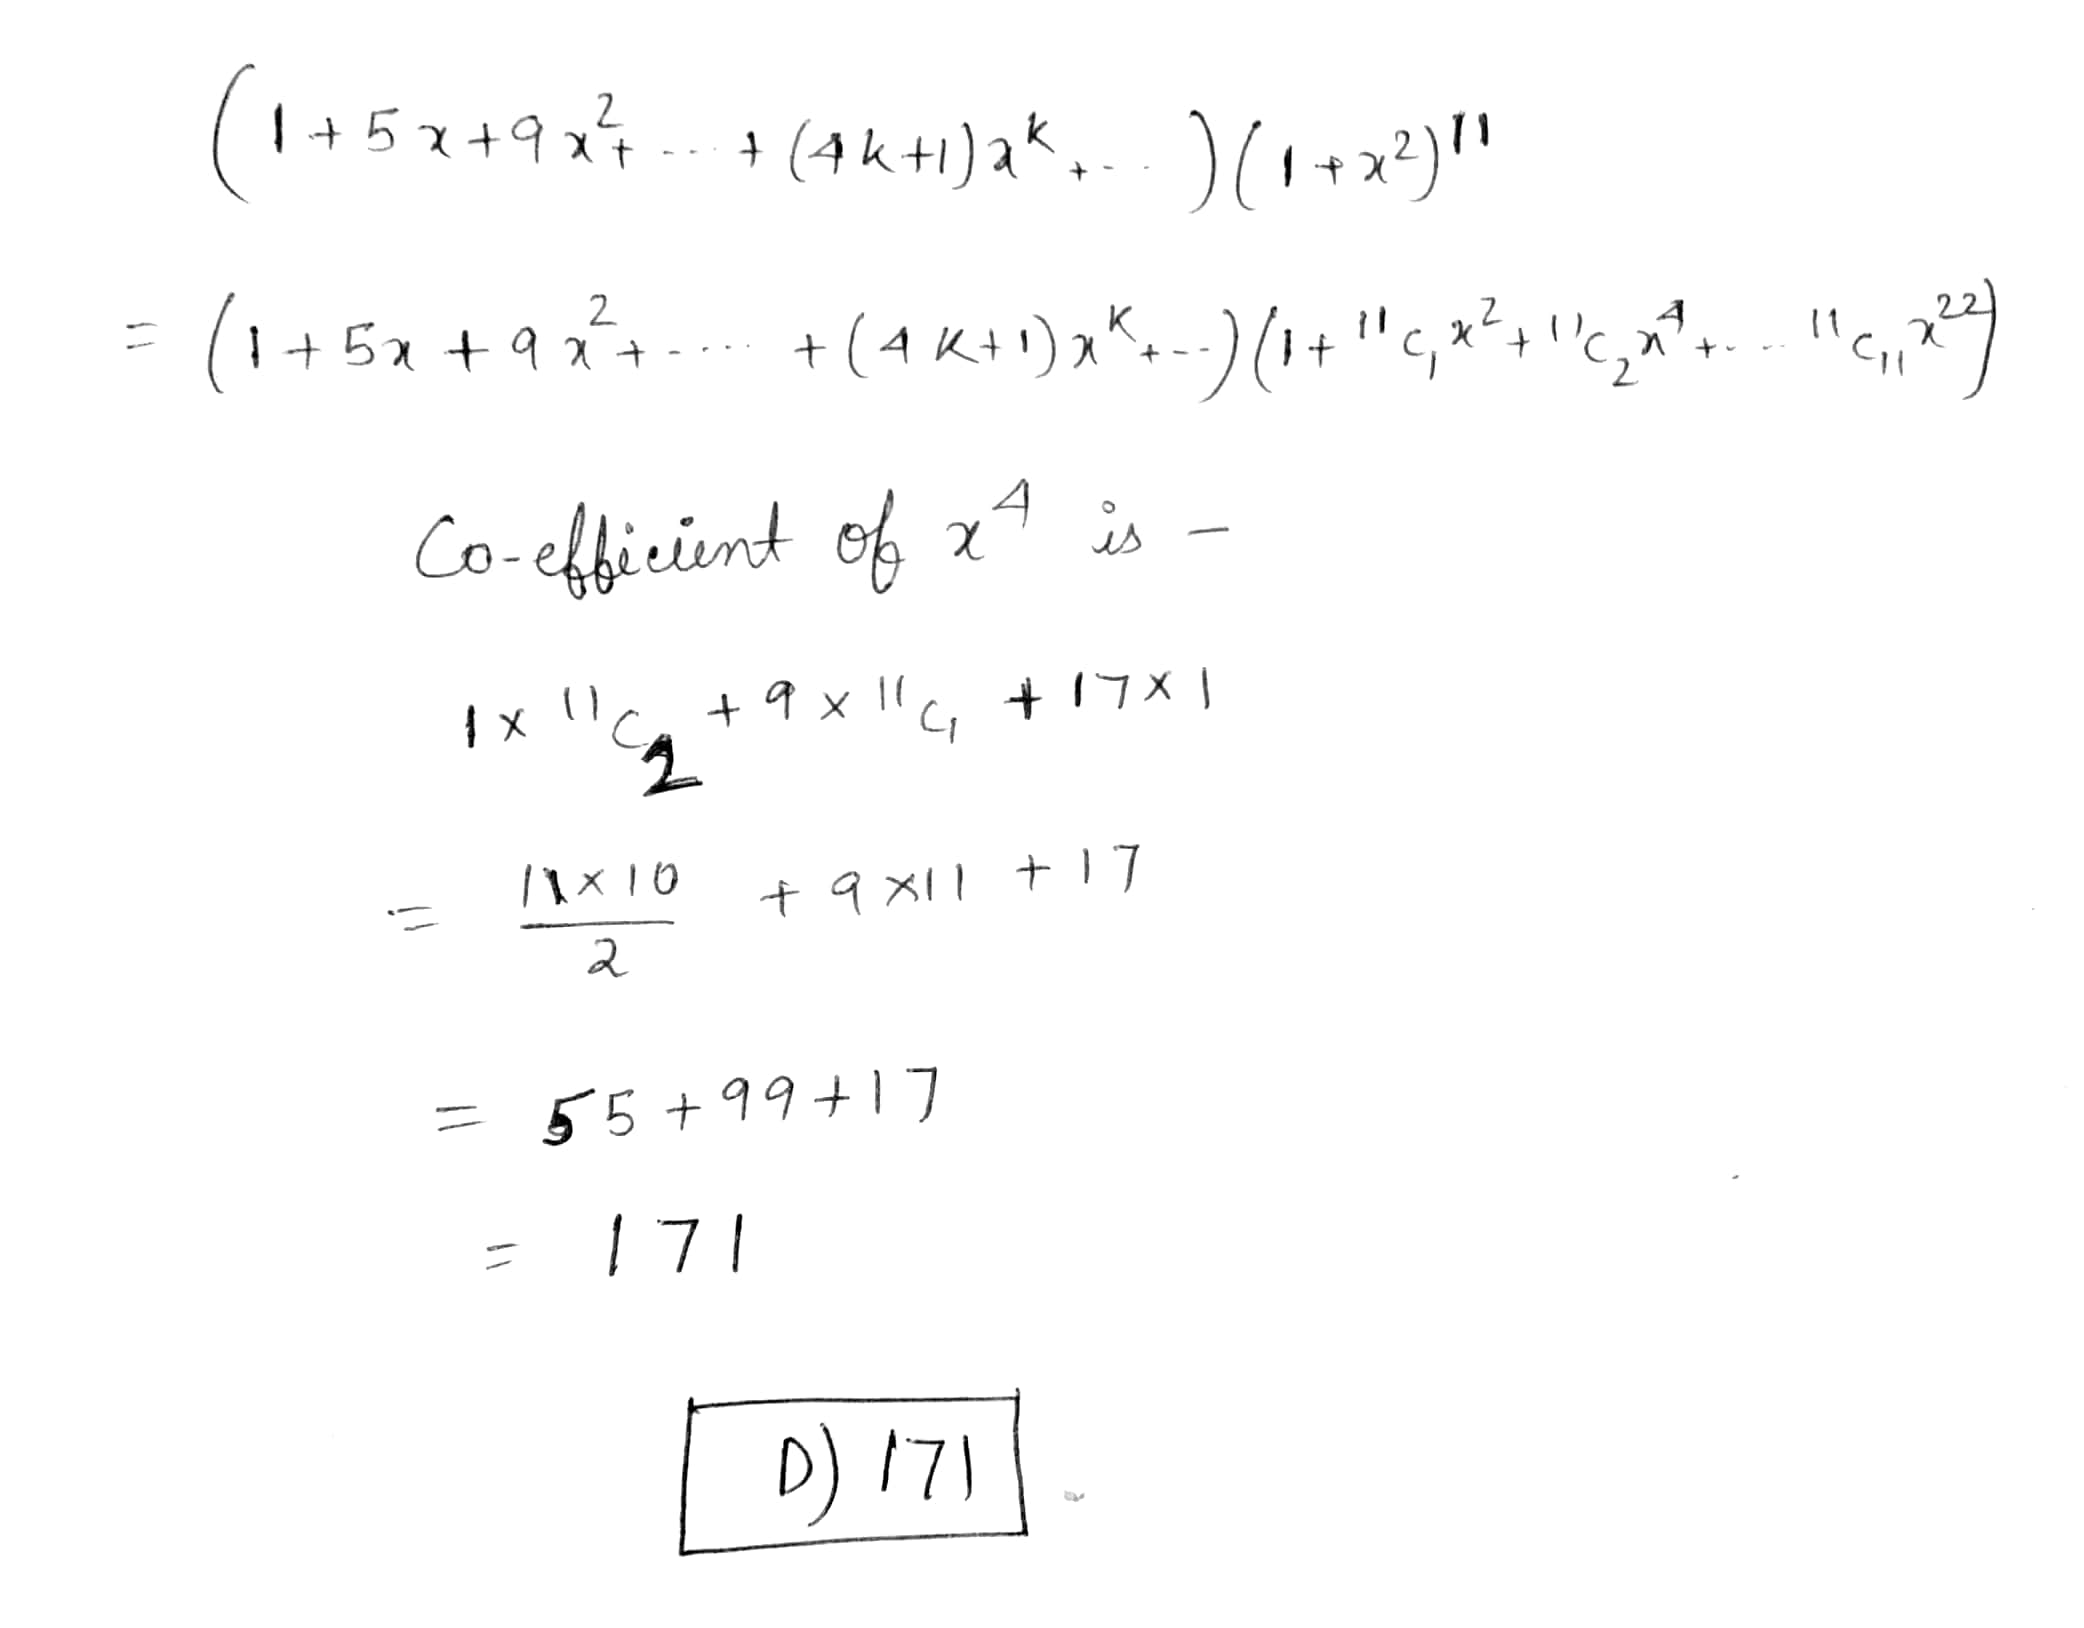 (1+5x+9x²+----+(4k+1)x^k+---)(1+x²)^11
= (1+5x+9x²+-----+(4K+1)x^K+--)(1+ ¹¹C₁x²+ ¹¹C₂x⁴+---- ¹¹C₁₁x²²)
Co-efficient of x⁴ is –
1× ¹¹C₂ +9× ¹¹C₁ +17×1
= 11×10/2 +9×11 +17
= 55+99+17
= 171
D) 171